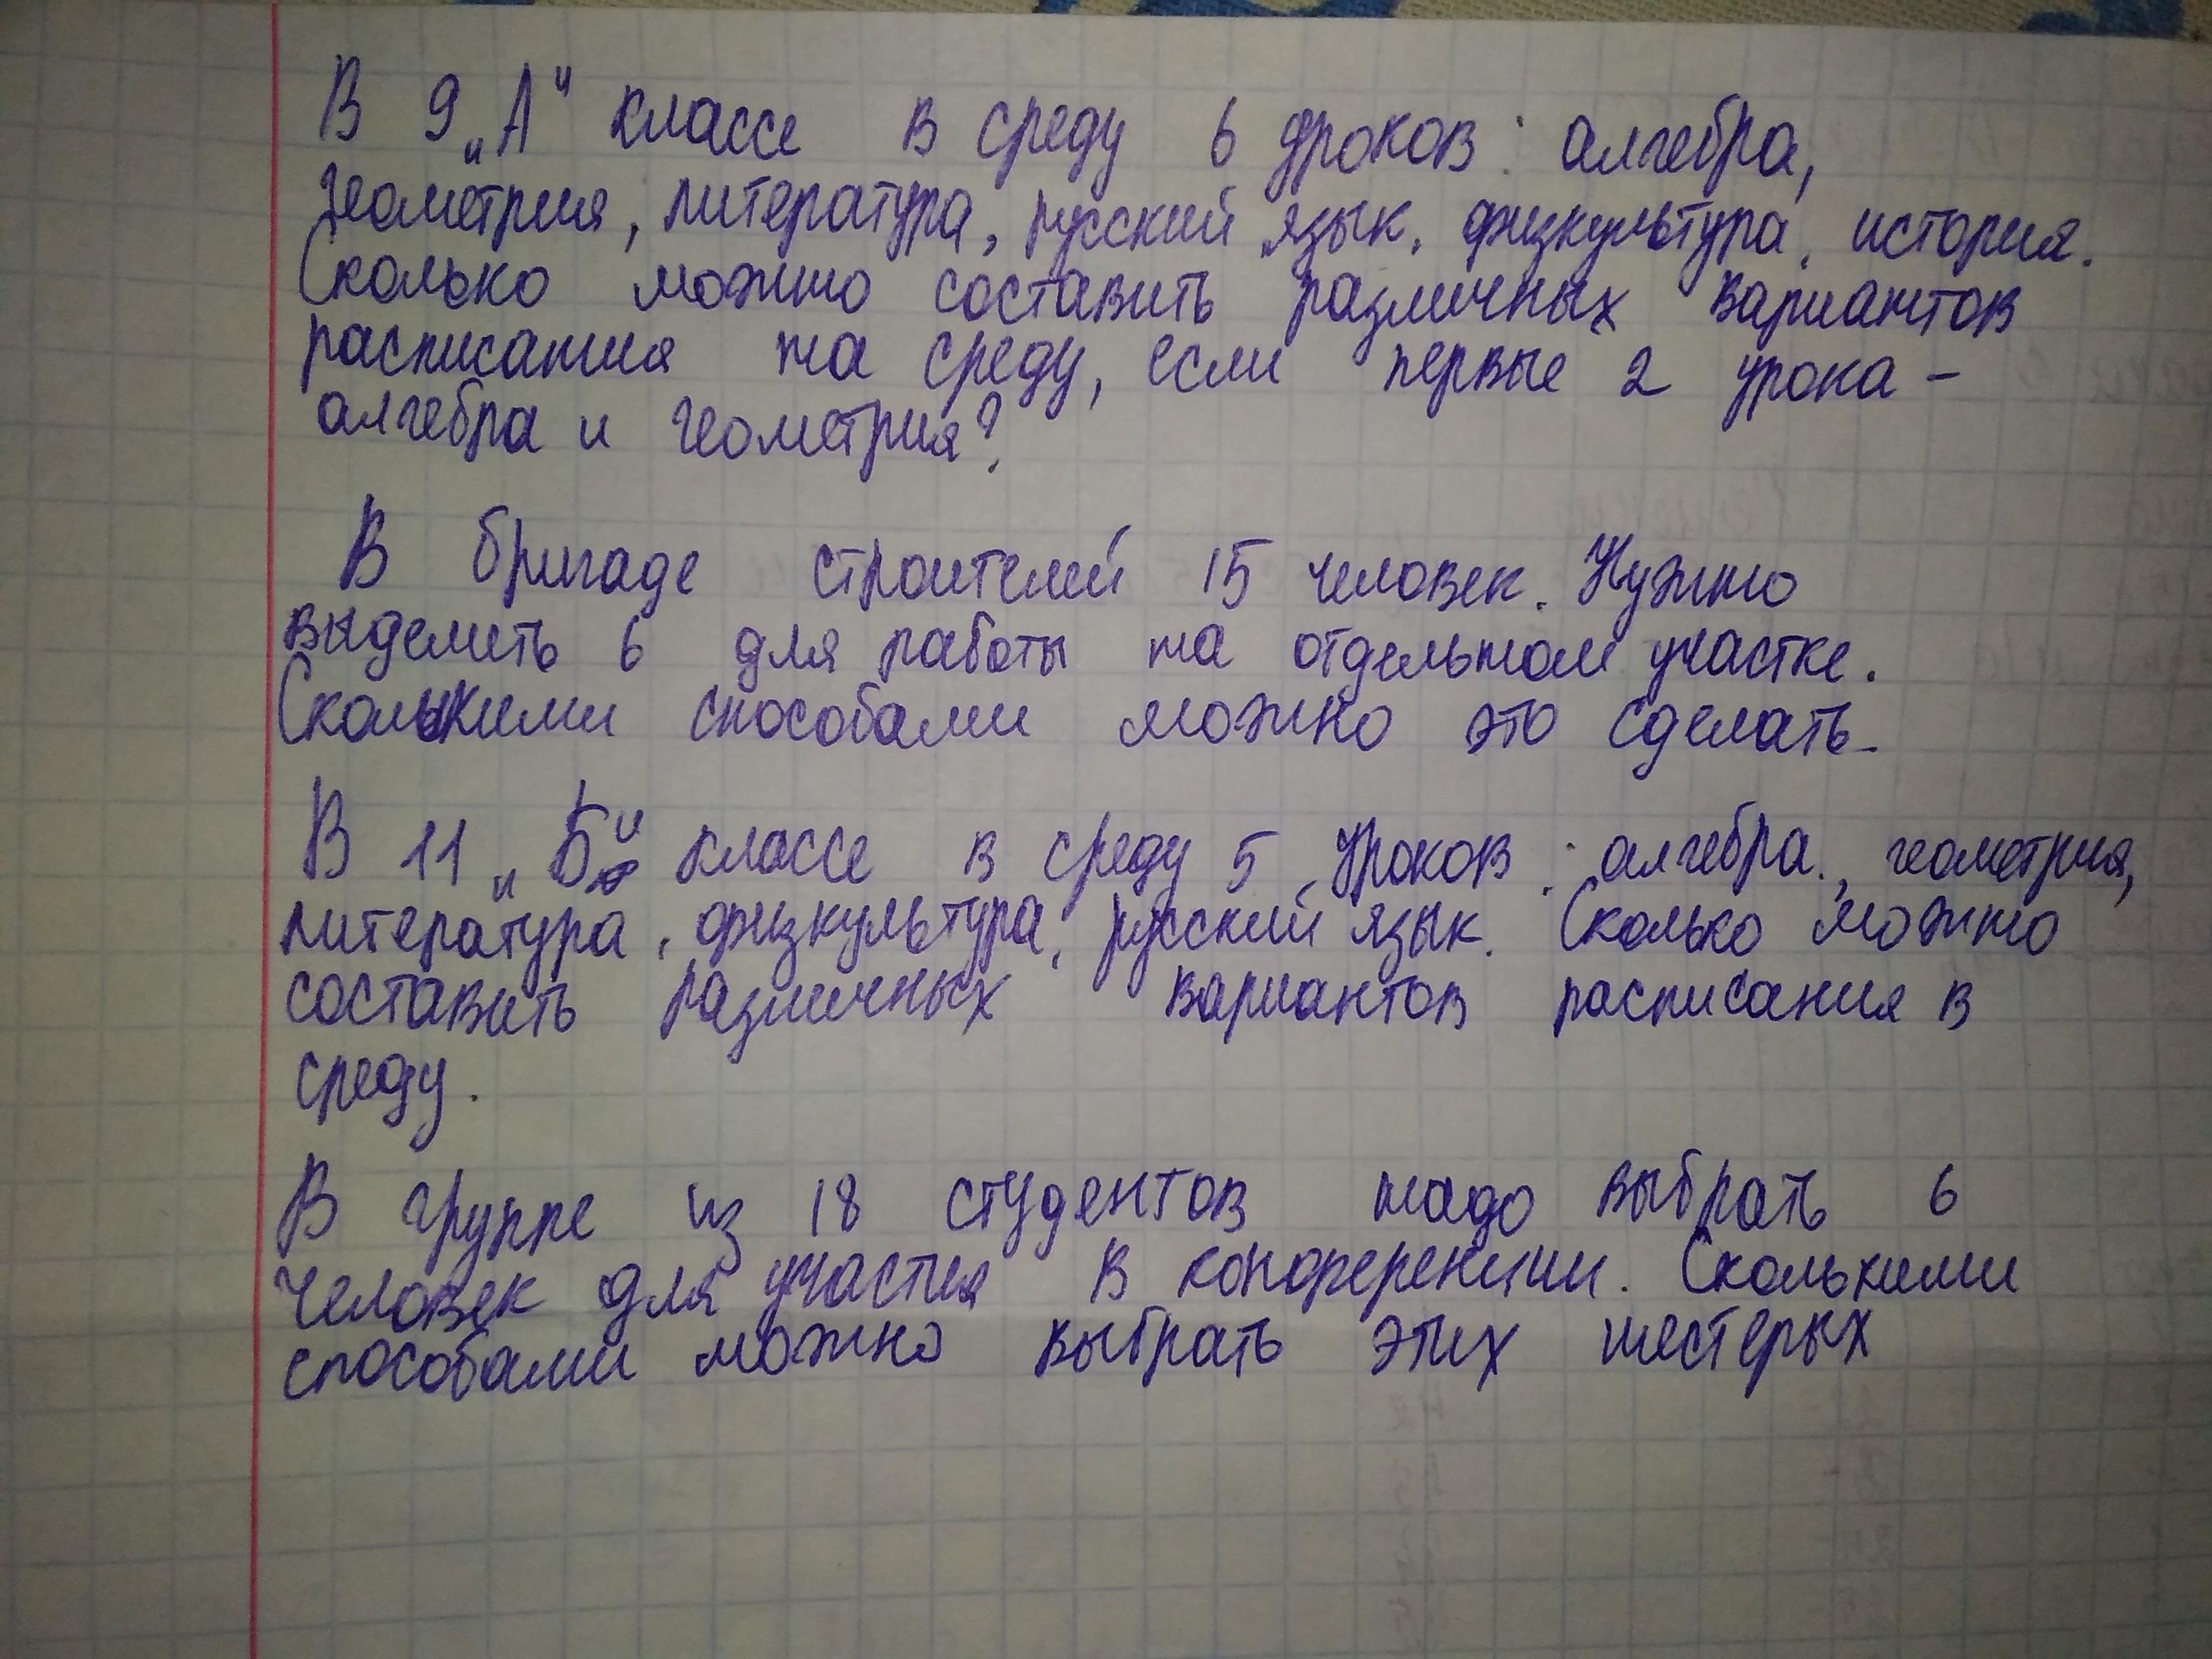 В 9 „А" классе в среду 6 уроков: алгебра,
геометрия, литература, русский язык, физкультура, история.
Сколько можно составить различных вариантов
расписания на среду, если первые 2 урока -
алгебра и геометрия?
В бригаде строителей 15 человек. Нужно
выделить 6 для работы на отдельном участке.
Сколькими способами можно это сделать.
В 11 „Б" классе в среду 5 уроков: алгебра, геометрия,
литература, физкультура, русский язык. Сколько можно
составить различных вариантов расписания в
среду.
В группе из 18 студентов надо выбрать 6
человек для участия в конференции. Сколькими
способами можно выбрать этих шестерых